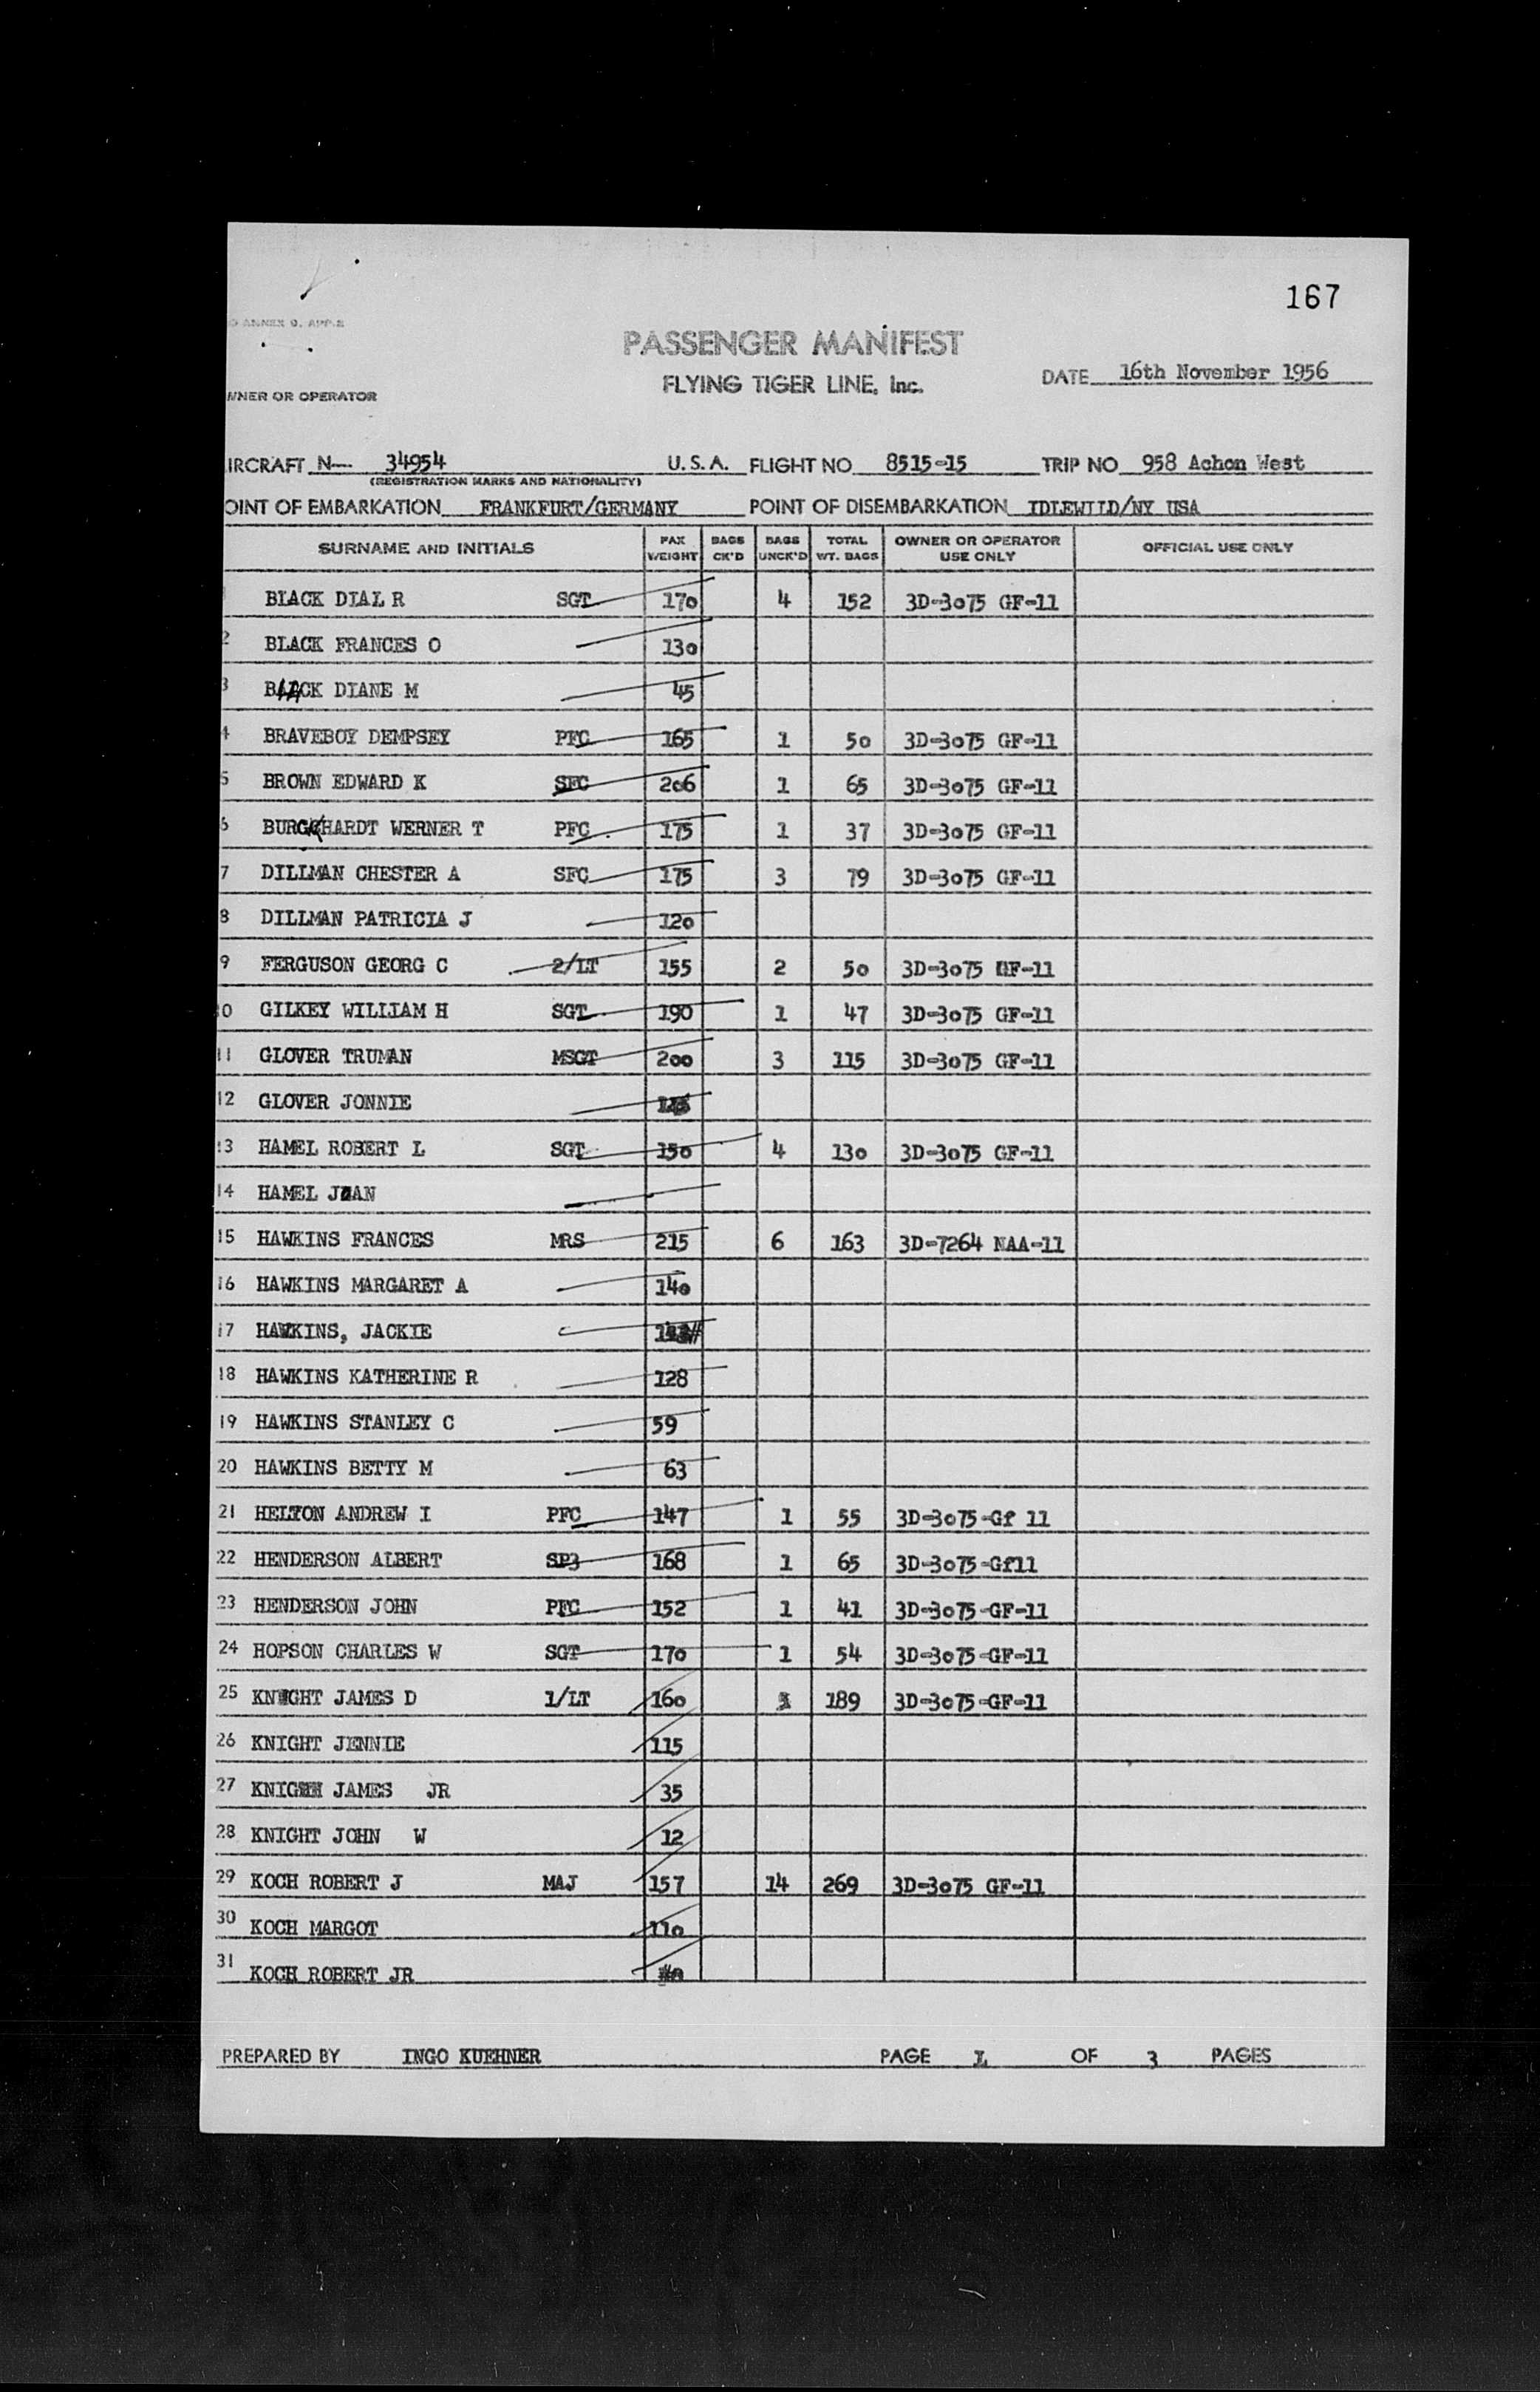 167
ANNEX 9. APP.2
PASSENGER MANIFEST
FLYING TIGER LINE, Inc.
DATE 16th November 1956
WNER OR OPERATOR
IRCRAFT N— 34954 U.S.A. FLIGHT NO 8515-15 TRIP NO 958 Achon West
(REGISTRATION MARKS AND NATIONALITY)
OINT OF EMBARKATION FRANKFURT/GERMANY POINT OF DISEMBARKATION IDLEWILD/NY USA
SURNAME AND INITIALS PAX WEIGHT BAGS CK'D BAGS UNCK'D TOTAL WT. BAGS OWNER OR OPERATOR USE ONLY OFFICIAL USE ONLY
BLACK DIAL R SGT 170 4 152 3D-3075 GF-11
2 BLACK FRANCES O 130
3 BLACK DIANE M 45
4 BRAVEBOY DEMPSEY PFC 165 1 50 3D-3075 GF-11
5 BROWN EDWARD K SFC 206 1 65 3D-3075 GF-11
6 BURGKHARDT WERNER T PFC 175 1 37 3D-3075 GF-11
7 DILLMAN CHESTER A SFC 175 3 79 3D-3075 GF-11
8 DILLMAN PATRICIA J 120
9 FERGUSON GEORG C 2/LT 155 2 50 3D-3075 GF-11
10 GILKEY WILLIAM H SGT 190 1 47 3D-3075 GF-11
11 GLOVER TRUMAN MSGT 200 3 115 3D-3075 GF-11
12 GLOVER JONNIE
13 HAMEL ROBERT L SGT 150 4 130 3D-3075 GF-11
14 HAMEL JOAN
15 HAWKINS FRANCES MRS 215 6 163 3D-7264 NAA-11
16 HAWKINS MARGARET A 140
17 HAWKINS, JACKIE
18 HAWKINS KATHERINE R 128
19 HAWKINS STANLEY C 59
20 HAWKINS BETTY M 63
21 HELTON ANDREW I PFC 147 1 55 3D-3075-Gf 11
22 HENDERSON ALBERT SP3 168 1 65 3D-3075-Gf11
23 HENDERSON JOHN PFC 152 1 41 3D-3075-GF-11
24 HOPSON CHARLES W SGT 170 1 54 3D-3075-GF-11
25 KNIGHT JAMES D 1/LT 160 189 3D-3075-GF-11
26 KNIGHT JENNIE 115
27 KNIGHT JAMES JR 35
28 KNIGHT JOHN W 12
29 KOCH ROBERT J MAJ 157 14 269 3D-3075 GF-11
30 KOCH MARGOT 110
31 KOCH ROBERT JR
PREPARED BY INGO KUEHNER PAGE 1 OF 3 PAGES